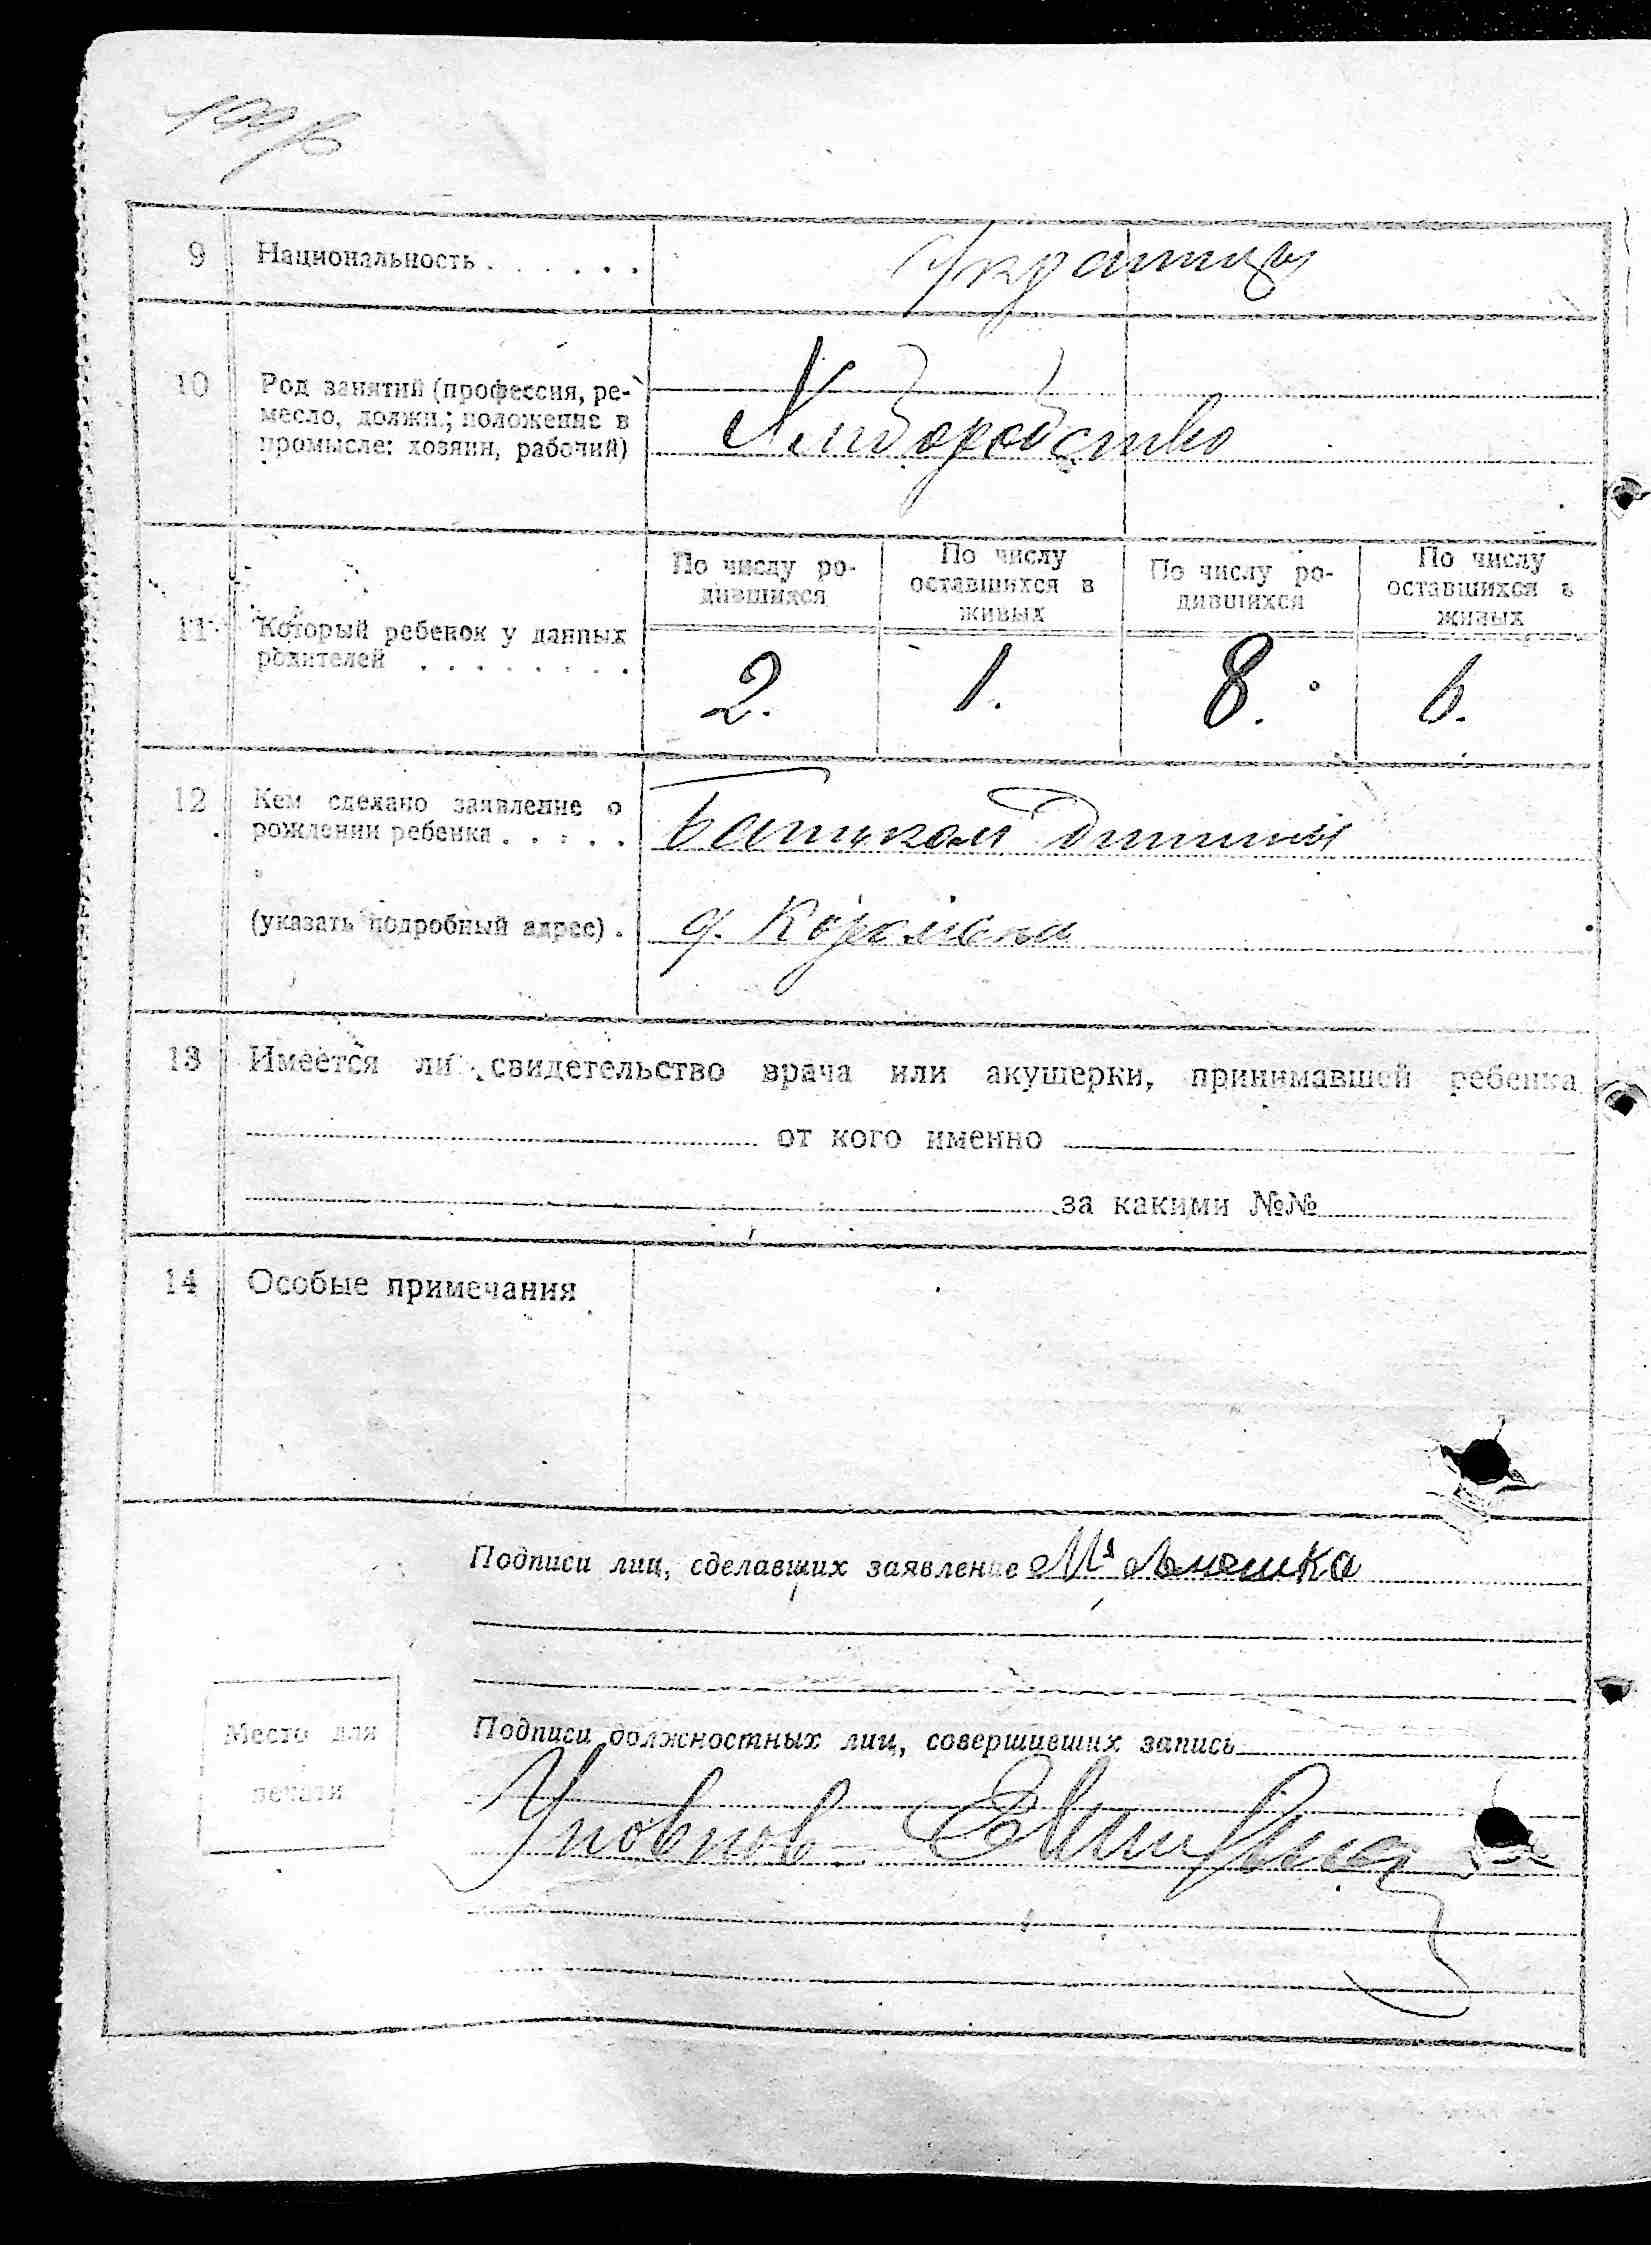 9 Национальность . . . . . .
Украинцы
10 Род занятий (профессия, ре-
месло, должн.; положение в
промысле: хозяин, рабочий)
Хлиборобство
По числу ро-
дившихся
По числу
оставшихся в
живых
По числу ро-
дившихся
По числу
оставшихся в
живых
11 Который ребенок у данных
родителей . . . . . . . .
2. 1. 8. 6.
12 Кем сделано заявление о
рождении ребенка . . . . .
Батьком дитины
(указать подробный адрес) .
13 Имеется ли свидетельство врача или акушерки, принимавшей ребенка
от кого именно
за какими №№
14 Особые примечания
Подписи лиц, сделавших заявление
Место для
печати
Подписи должностных лиц, совершивших запись